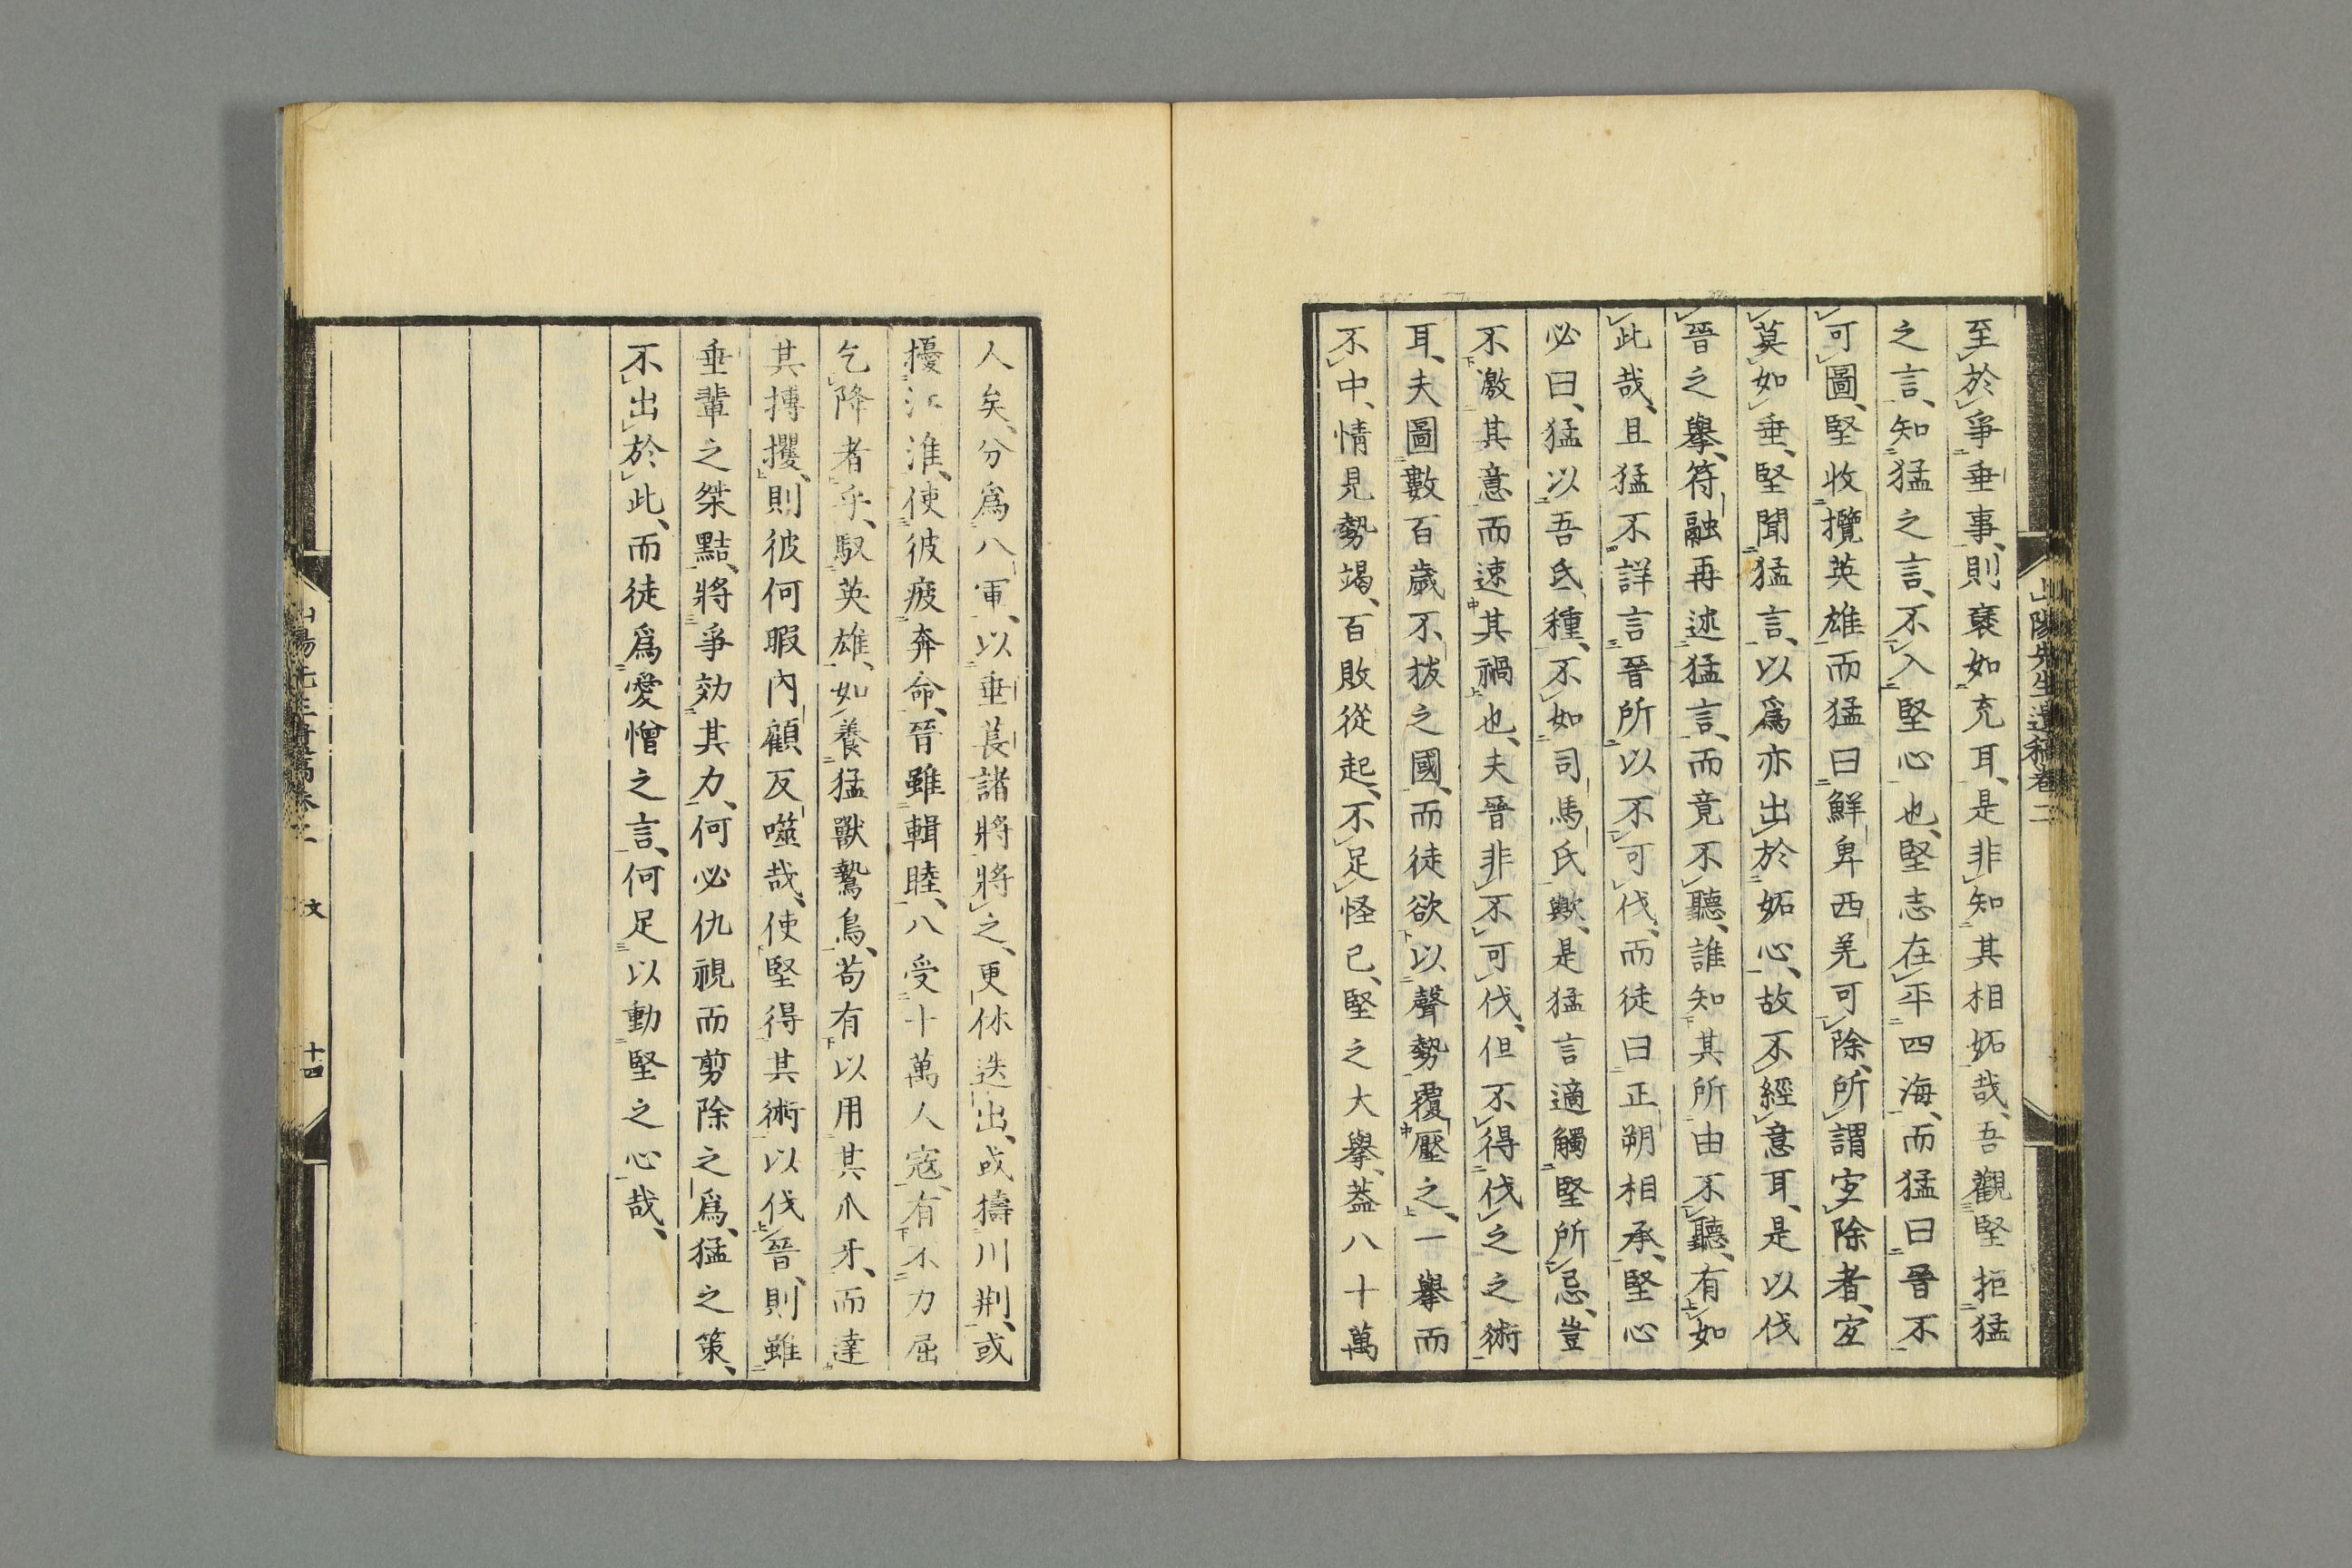 山陽先生遺稿卷二
至於爭垂事、則褎如充耳、是非知其相妬哉、吾觀堅拒猛
之言、知猛之言、不入堅心也、堅志在平四海、而猛曰晉不
可圖、堅收攬英雄而猛曰鮮卑西羌可除、所謂宜除者、宜
莫如垂、堅聞猛言、以爲亦出於妬心、故不經意耳、是以伐
晉之擧、符融再述猛言、而竟不聽、誰知其所由不聽、有如
此哉、且猛不詳言晉所以不可伐、而徒曰正朔相承、堅心
必曰、猛以吾氐種、不如司馬氏歟、是猛言適觸堅所忌、豈
不激其意而速其禍也、夫晉非不可伐、但不得伐之之術
耳、夫圖數百歲不拔之國、而徒欲以聲勢覆壓之、一擧而
不中、情見勢竭、百敗從起、不足怪已、堅之大擧、蓋八十萬
人矣、分爲八軍、以垂萇諸將將之、更休迭出、或擣川荆、或
擾江淮、使彼疲奔命、晉雖輯睦、八受十萬人寇、有不力屈
乞降者乎、馭英雄、如養猛獸鷙鳥、苟有以用其爪牙、而達
其搏攫、則彼何暇內顧反噬哉、使堅得其術以伐晉、則雖
垂輩之桀黠、將爭効其力、何必仇視而剪除之爲、猛之策、
不出於此、而徒爲愛憎之言、何足以動堅之心哉、
文
十四